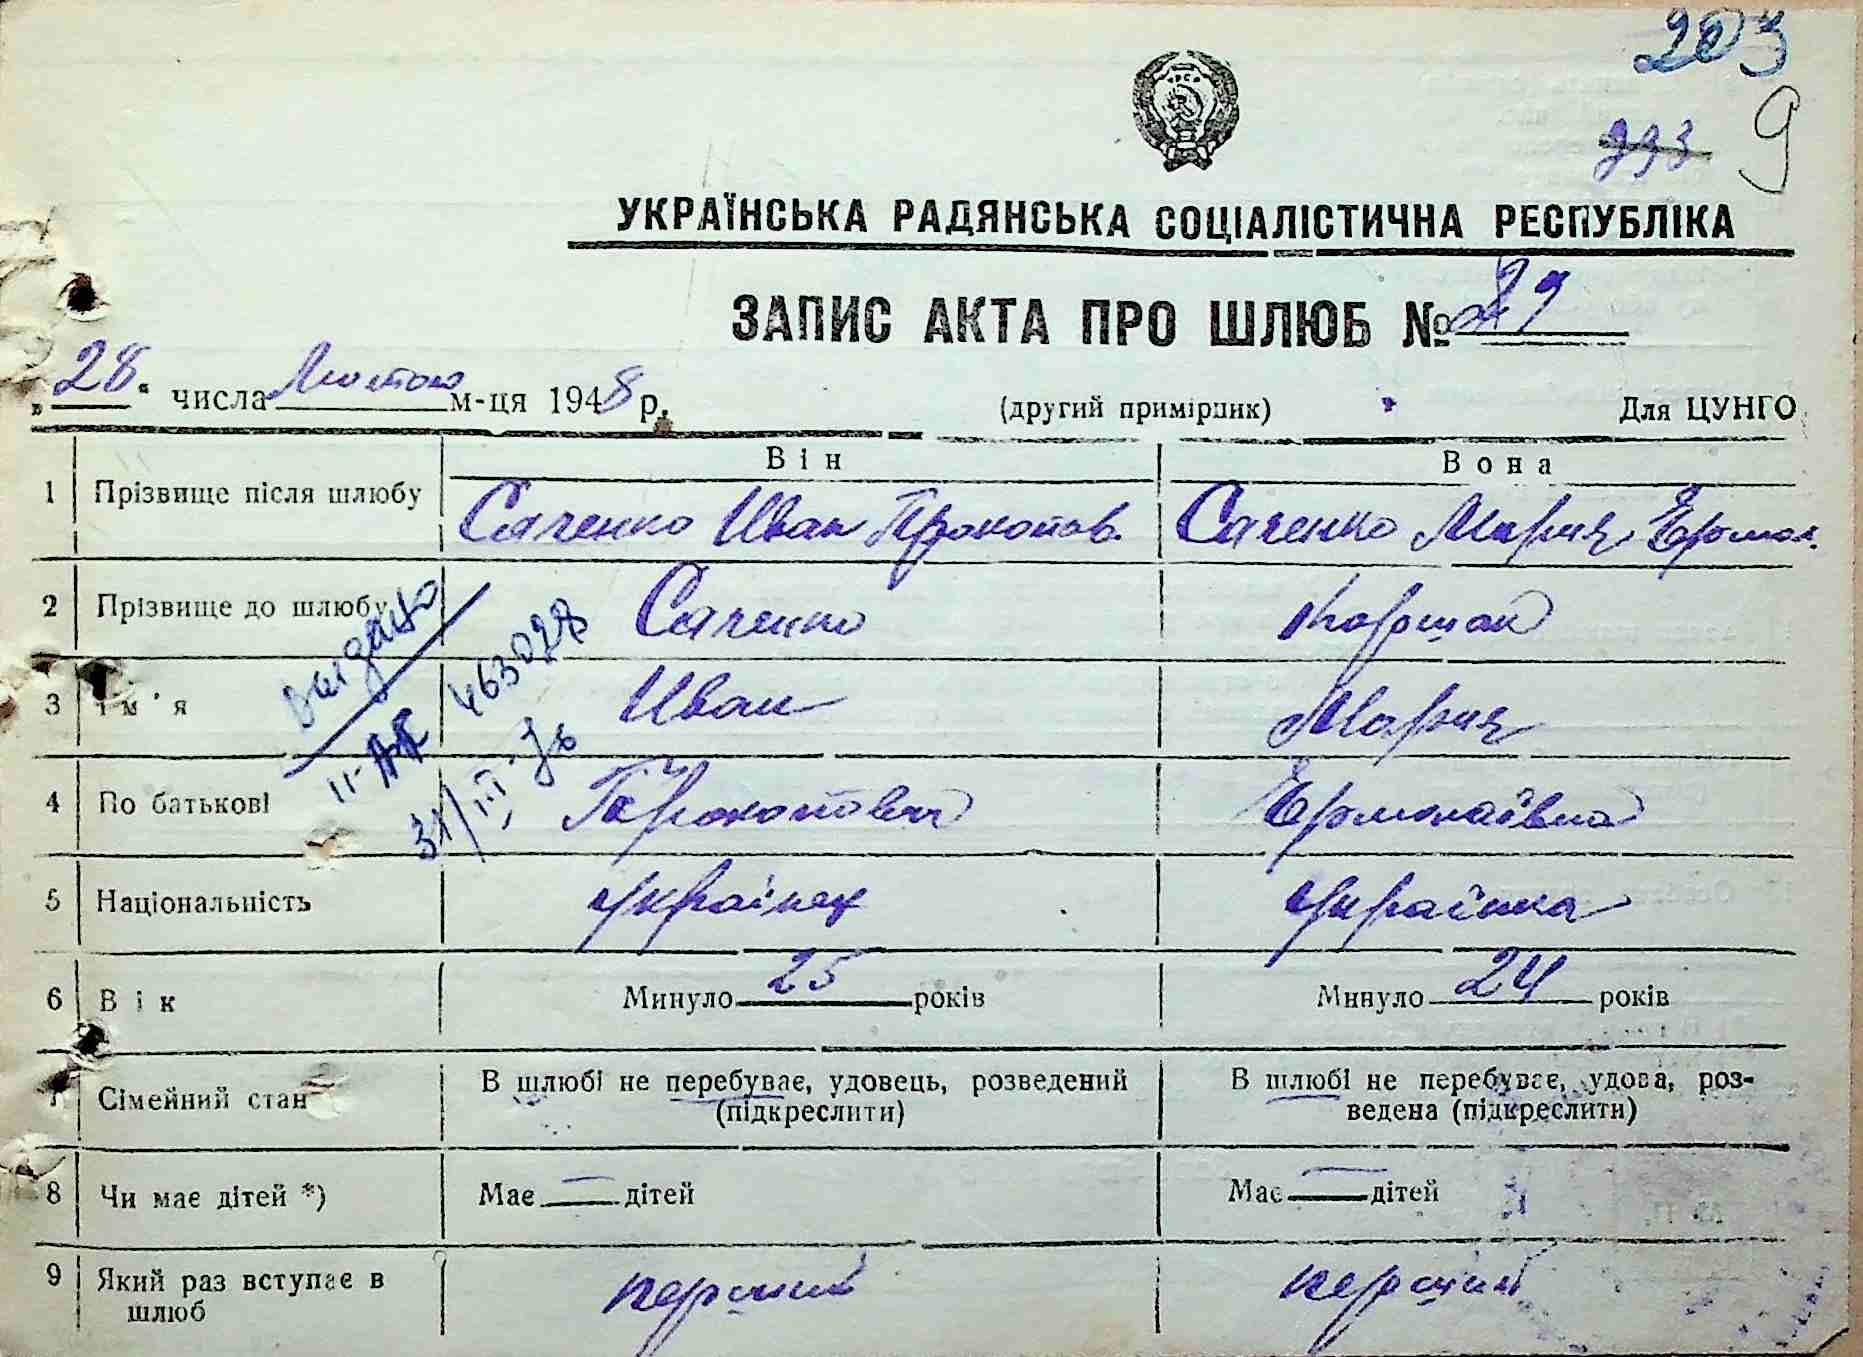 203
293
9
УКРАЇНСЬКА РАДЯНСЬКА СОЦІАЛІСТИЧНА РЕСПУБЛІКА
ЗАПИС АКТА ПРО ШЛЮБ № 29
„28“ числа Лютого м-ця 1948 р. (другий примірник) Для ЦУНГО
Він Вона
1 Прізвище після шлюбу Саченко Иван Прокопов. Саченко Мария Ермол.
2 Прізвище до шлюбу Саченко Коршак
3 Ім'я Иван Мария
4 По батькові Прокопович Ермолаївна
5 Національність українец українка
6 Вік Минуло 25 років Минуло 24 років
7 Сімейний стан В шлюбі не перебуває, удовець, розведений (підкреслити) В шлюбі не перебуває, удова, роз-
ведена (підкреслити)
8 Чи має дітей *) Має — дітей Має — дітей
9 Який раз вступає в шлюб перший перший
выдано
II-АК 463027
31/III-76